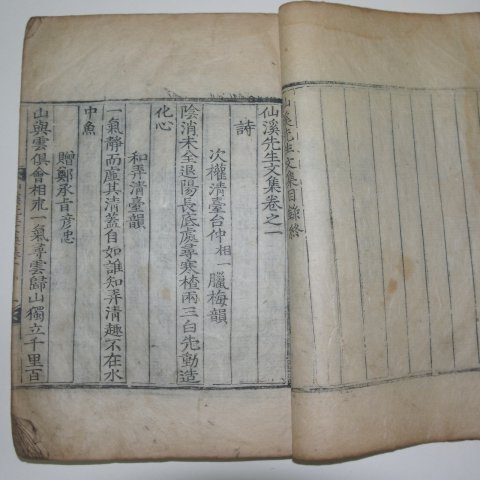 仙溪先生文集目錄終
仙溪先生文集卷之一
詩
次權清臺台仲相一臘梅韻
陰消未全退陽長底處尋寒楂兩三白先動造
化心
和弄清臺韻
一氣靜而虛其清蓋自如誰知弄清趣不在水
中魚
贈鄭承旨彦忠
山與雲俱會相永一氣尋雲歸山獨立千里百